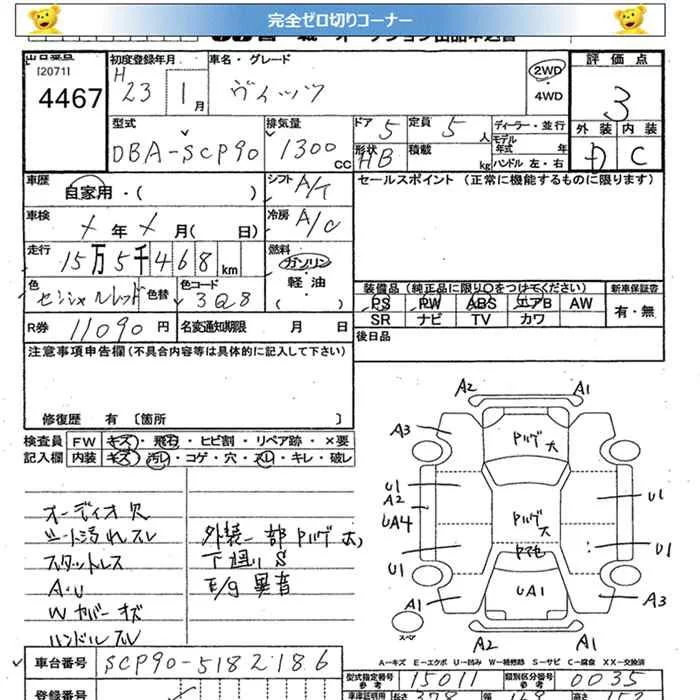 完全ゼロ切りコーナー
出品番号
[2071]
4467
初度登録年月
H 23 1月
車名・グレード
ヴィッツ
2WD
・
4WD
評価点
3
外装 内装
D C
型式
DBA-SCP90
排気量
1300 CC
ドア 5
定員 5 人
形状 HB
積載 kg
ディーラー・並行
モデル年式 年
ハンドル 左・右
車歴
自家用・( )
シフト A/T
セールスポイント (正常に機能するものに限ります)
車検
メ年メ月( 日)
冷房 A/C
走行
15万5千468km
燃料
ガソリン
・
軽油
色
センシャルレッド 色替
色コード
3Q8
装備品(純正品に限り○をつけてください)
新車保証書
PS PW ABS エアB AW
SR ナビ TV カワ
有・無
R券 11090円
名変通知期限 月 日
後日品
注意事項申告欄(不具合内容等は具体的に記入して下さい)
修復歴 有 〔箇所 〕
検査員 FW キズ・飛石・ヒビ割・リペア跡・×要
記入欄 内装 キズ・汚レ・コゲ・穴・スレ・キレ・破レ
オーディオ欠
シート汚れスレ
スタットレス
A・U
Wカバーキズ
ハンドルスレ
外装一部Pハゲ大
下廻りS
E/g異音
A2 A1
A3
Pハゲ大
U1
A2
UA4
U1
Pハゲ大
U1
U1
UA1
A1
A3
スペア
A2 A1
A-キズ E-エクボ U-凹み W-補修跡 S-サビ C-腐食 XX-交換済
車台番号 SCP90-5182186
型式指定番号
参考
15011
類別区分番号
参考
0035
登録番号